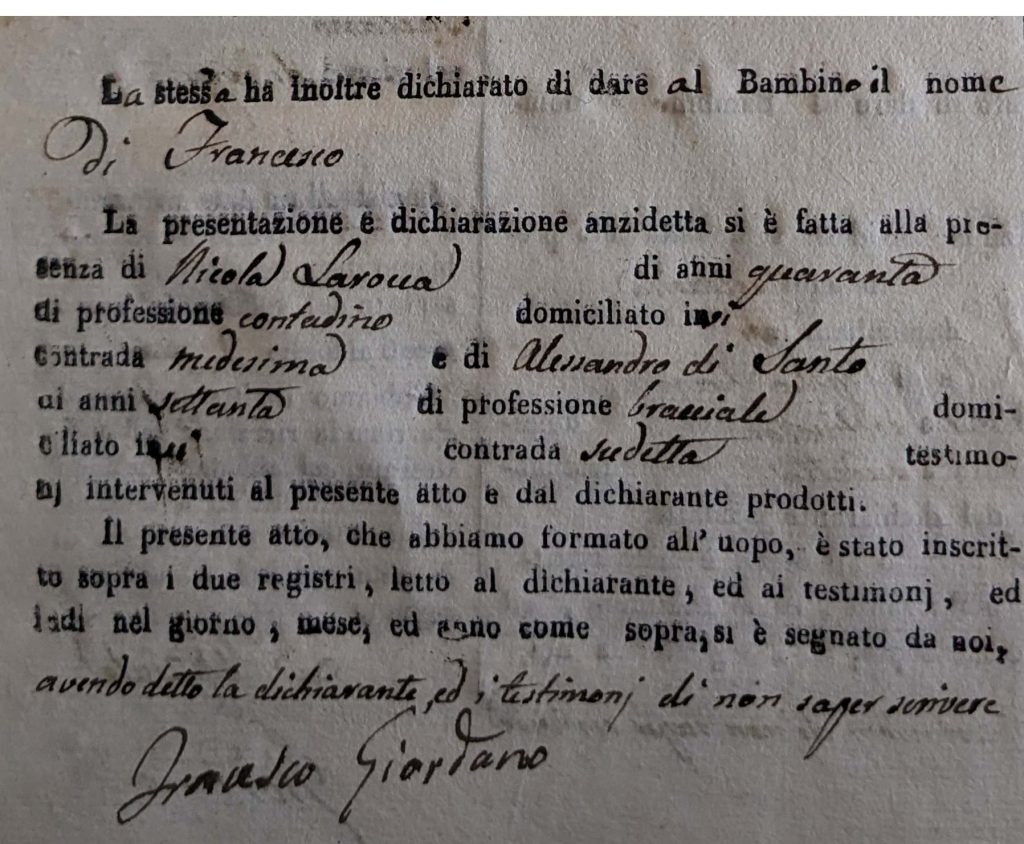 La stessa ha inoltre dichiarato di dare al Bambino il nome
Di Francesco
La presentazione e dichiarazione anzidetta si è fatta alla pre-
senza di Nicola Larocca di anni quaranta
di professione contadino domiciliato ivi
contrada medesima e di Alessandro di Santo
di anni settanta di professione bracciale domi-
ciliato ivi contrada sudetta testimo-
nj intervenuti al presente atto e dal dichiarante prodotti.
Il presente atto, che abbiamo formato all' uopo, è stato inscrit-
to sopra i due registri, letto al dichiarante, ed ai testimonj, ed
indi nel giorno, mese, ed anno come sopra, si è segnato da noi,
avendo detto la dichiarante, ed i testimonj di non saper scrivere
Francesco Giordano